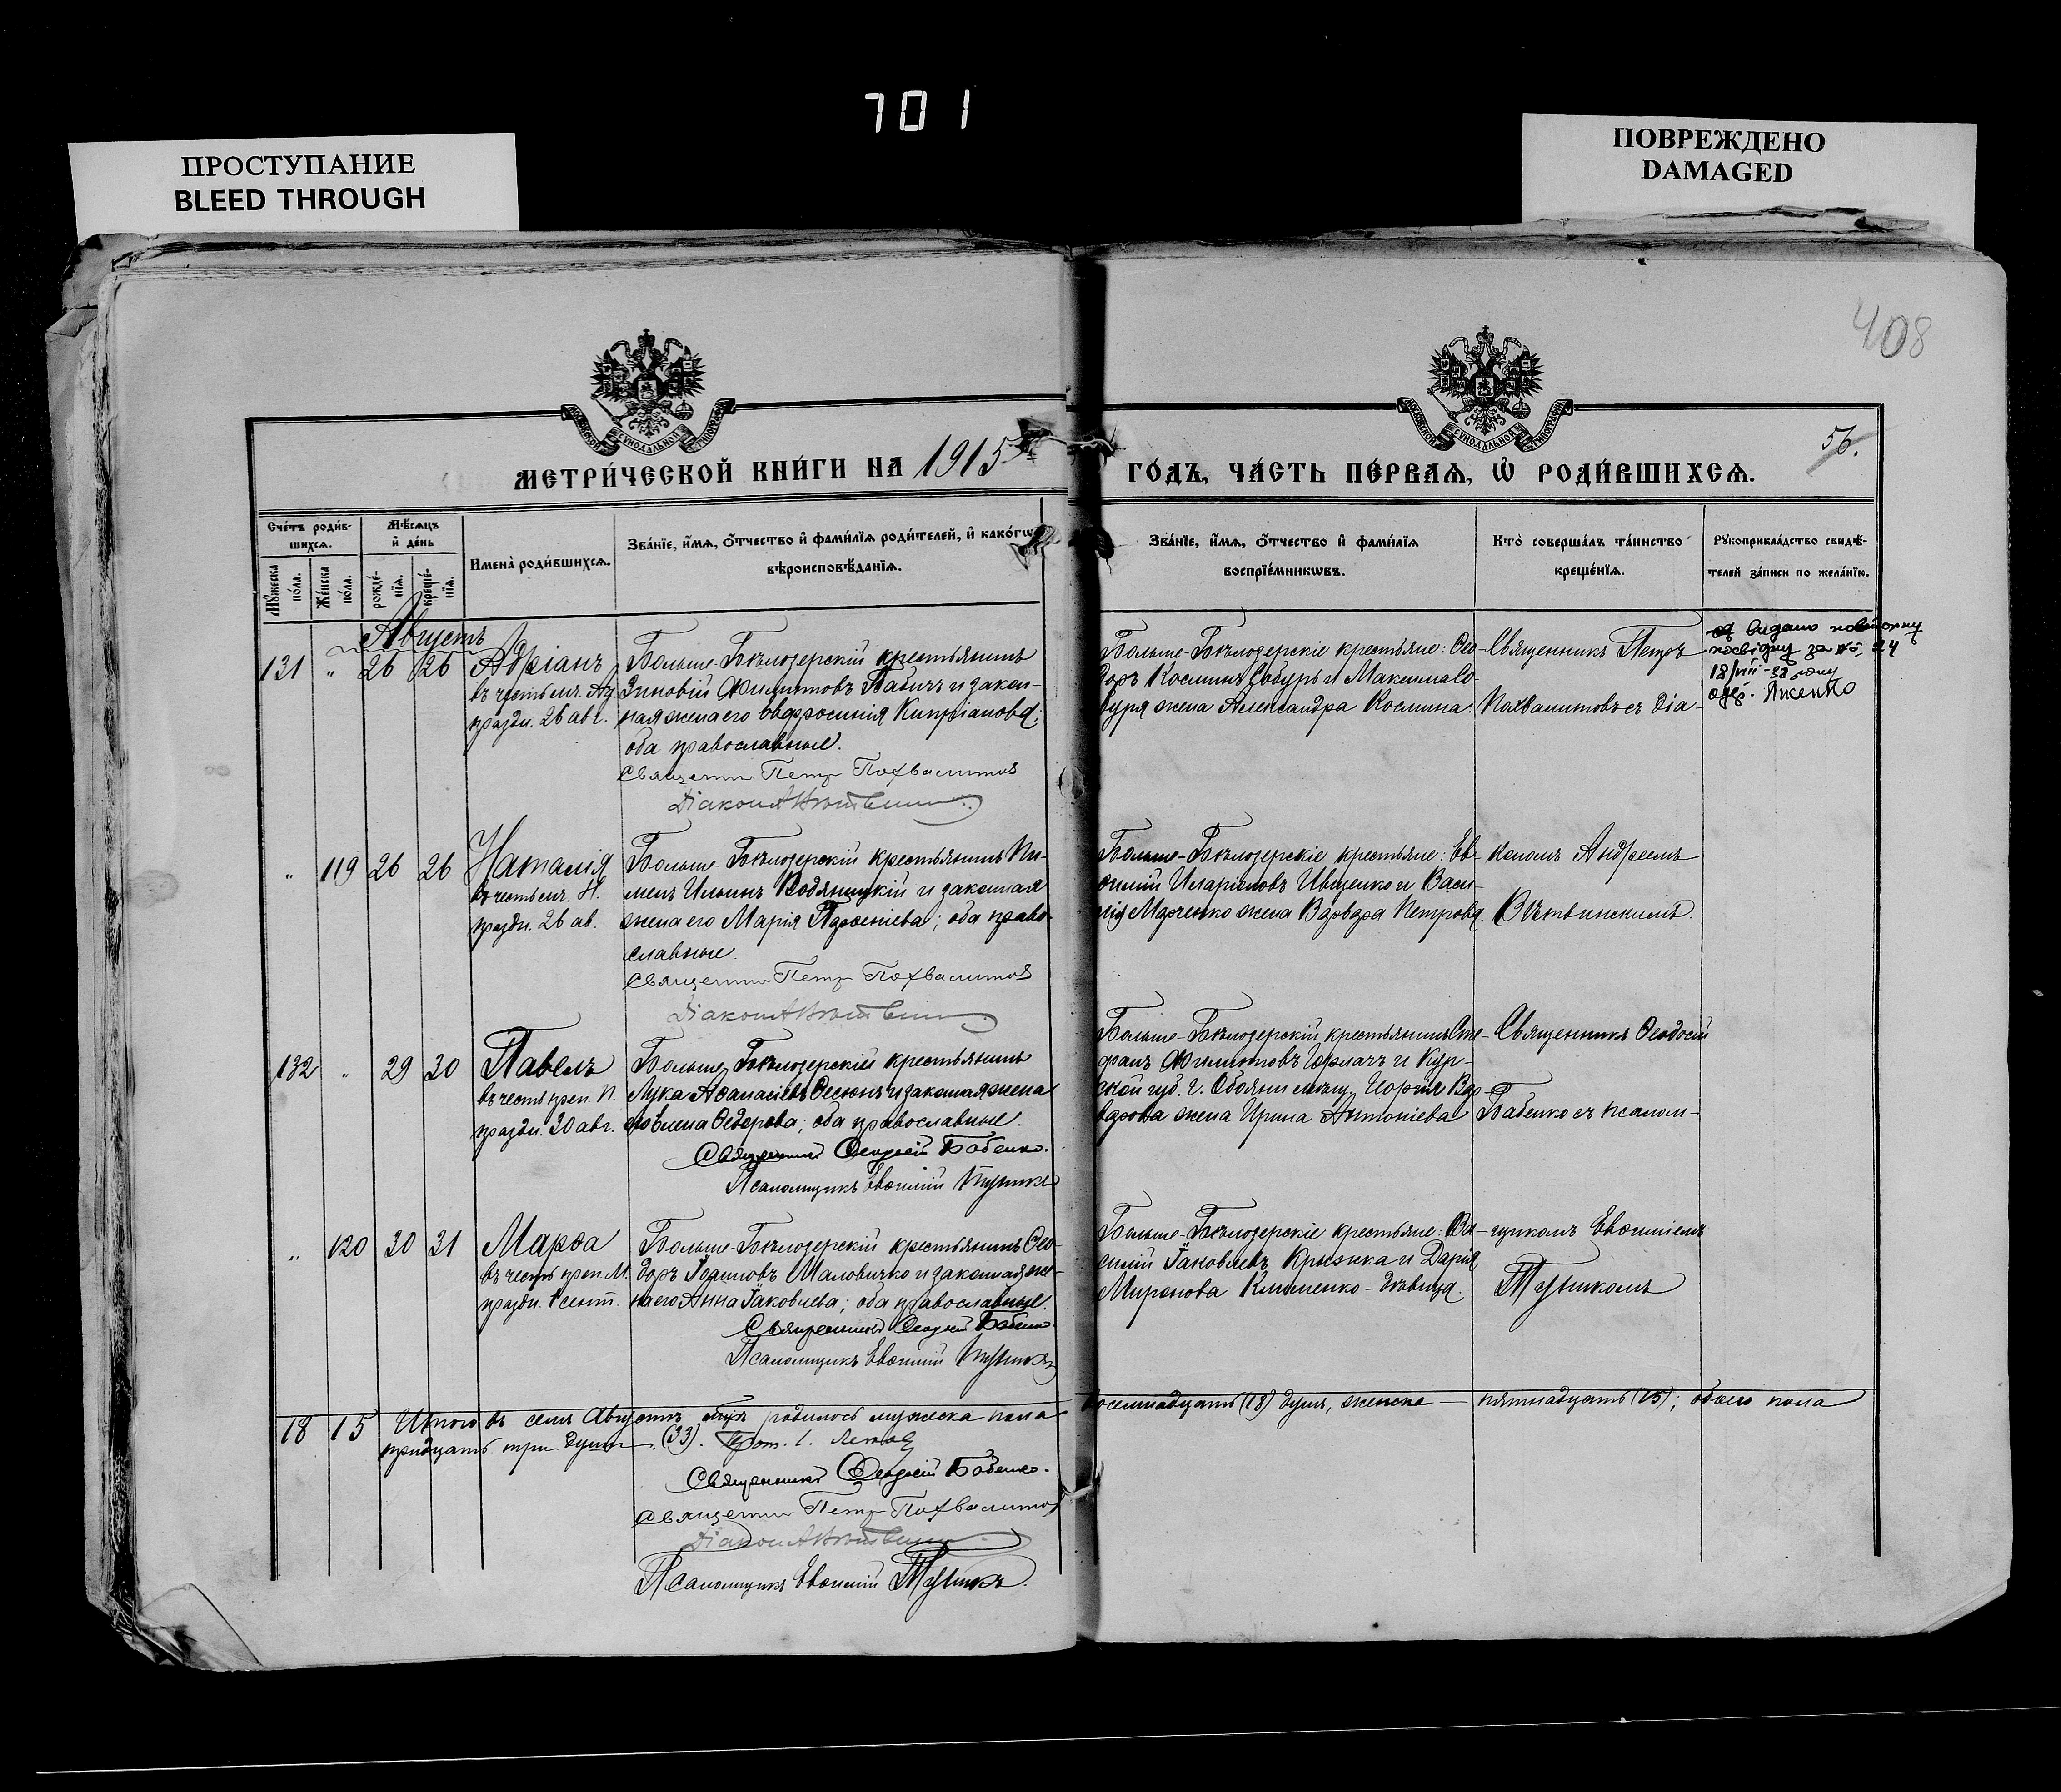 701
ПРОСТУПАНИЕ
BLEED THROUGH
ПОВРЕЖДЕНО
DAMAGED
408
56.
МЕТРИ́ЧЕСКОЙ КНИ́ГИ НА 1915
ГО́ДЪ, ЧА́СТЬ ПЕ́РВАѦ, Ѡ҆ РОДИ́ВШИХСѦ.
Сче́тъ роди́в-
шихсѧ.
Мѣ́сѧцъ
и҆ де́нь
Мꙋ́жеска
по́ла.
Же́нска
по́ла.
рожде́-
нїѧ.
креще́-
нїѧ.
Имена̀ роди́вшихсѧ.
Зва́нїе, и҆́мѧ, ѻ҆́тчество и҆ фами́лїѧ роди́телей, и҆ како́гѡ
вѣроисповѣ́данїѧ.
Зва́нїе, и҆́мѧ, ѻ҆́тчество и҆ фами́лїѧ
воспрїе́мникѡвъ.
Кто̀ соверша́лъ та́инство
креще́нїѧ.
Рꙋкоприкла́дство свидѣ́-
телей за́писи по жела́нїю.
Августъ
131 " 26 26 Адріанъ
въ честь мч. Ад.
праздн. 26 авг.
Больше-Бѣлозерскій крестьянинъ
Зиновій Филиповъ Бабичъ и закон-
ная жена его Евфросинія Кипріанова;
оба православные.
Священник Петр Похвалитов
Діакон А Вѣтвин
Больше-Бѣлозерскіе крестьяне: Ѳео-
доръ Косминъ Собурь и Максима Со-
буря жена Александра Космина.
Священникъ Петръ
Похвалитовъ съ діа-
видано повторну
посвідку за № 24
18/VIII-38 року
" 119 26 26 Наталія
въ честь мч. Н.
праздн. 26 ав.
Больше-Бѣлозерскій крестьянинъ Пи-
менъ Ильинъ Водяницкій и законная
жена его Марія Парѳеніева; оба право-
славные.
Священник Петр Похвалитов
Діакон А Вѣтвин
Больше-Бѣлозерскіе крестьяне: Ев-
ѳимій Иларіоновъ Иващенко и Васи-
лія Марченко жена Варвара Петрова.
кономъ Андреемъ
Вѣтвинскимъ.
132 " 29 30 Павелъ
въ честь преп. П.
праздн. 30 авг.
Больше-Бѣлозерскій крестьянинъ
Лука Аѳанасіевъ Осеюнъ и законная жена
его Елена Ѳедорова; оба православные.
Священникъ Ѳеодосій Бабенко.
Псаломщикъ Евѳимій Тупикъ
Больше-Бѣлозерскій крестьянинъ Сте-
фанъ Филиповъ Горлачъ и Кур-
ской губ. г. Обояни мѣщ. Георгія Вар-
варова жена Ирина Антоніева
Священникъ Ѳеодосій
Бабенко съ псалом-
" 120 30 31 Марѳа
въ честь преп. М.
праздн. 1 сент.
Больше-Бѣлозерскій крестьянинъ Ѳео-
доръ Іоанновъ Маловичко и законная же-
на его Анна Іаковлева; оба православные.
Священникъ Ѳеодосій Бабенко
Псаломщикъ Евѳимій Тупикъ
Больше-Бѣлозерскіе крестьяне: Ва-
силій Іаковлевъ Крыжка и Дарія
Миронова Клименко - дѣвица.
щикомъ Евѳиміемъ
Тупикомъ
18 15 Итого въ семъ Августѣ м-цѣ родилось мужеска пола восемнадцать (18) душъ, женска — пятнадцать (15); обоего пола
тридцать три души. (33).
Священникъ Ѳеодосій Бабенко.
Священник Петр Похвалитов
Діакон А Вѣтвин
Псаломщикъ Евѳимій Тупикъ.